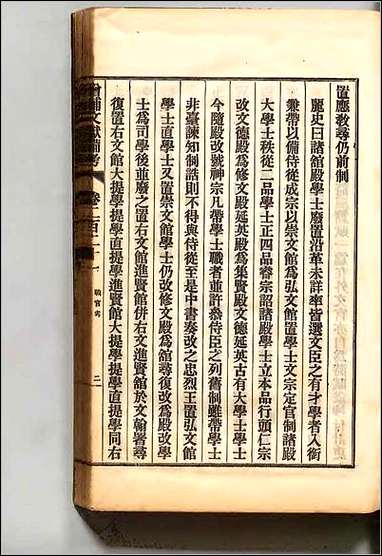 置應敎尋仍前制
麗史曰諸館殿學士廢置沿革未詳率皆選文臣之有才學者入銜
兼帶以備侍從成宗以崇文館爲弘文館置學士文宗定官制諸殿
大學士秩從二品學士正四品睿宗詔諸殿學士立本品行頭仁宗
改文德殿爲修文殿延英殿爲集賢殿文德延英古有大學士學士
今隨殿改號神宗凡帶學士職者並許叅侍臣之列舊制雖帶學士
非臺諫知制誥則不得與侍從至是中書奏改之忠烈王置弘文館
學士直學士又置崇文館學士仍改修文殿爲舘尋復改爲殿改學
士爲司學後並廢之置右文館進賢舘併右文進賢舘於文翰署尋
復置右文館大提學提學直提學進賢館大提學提學直提學同右
增補文獻備考 卷二百二十一 職官考 二